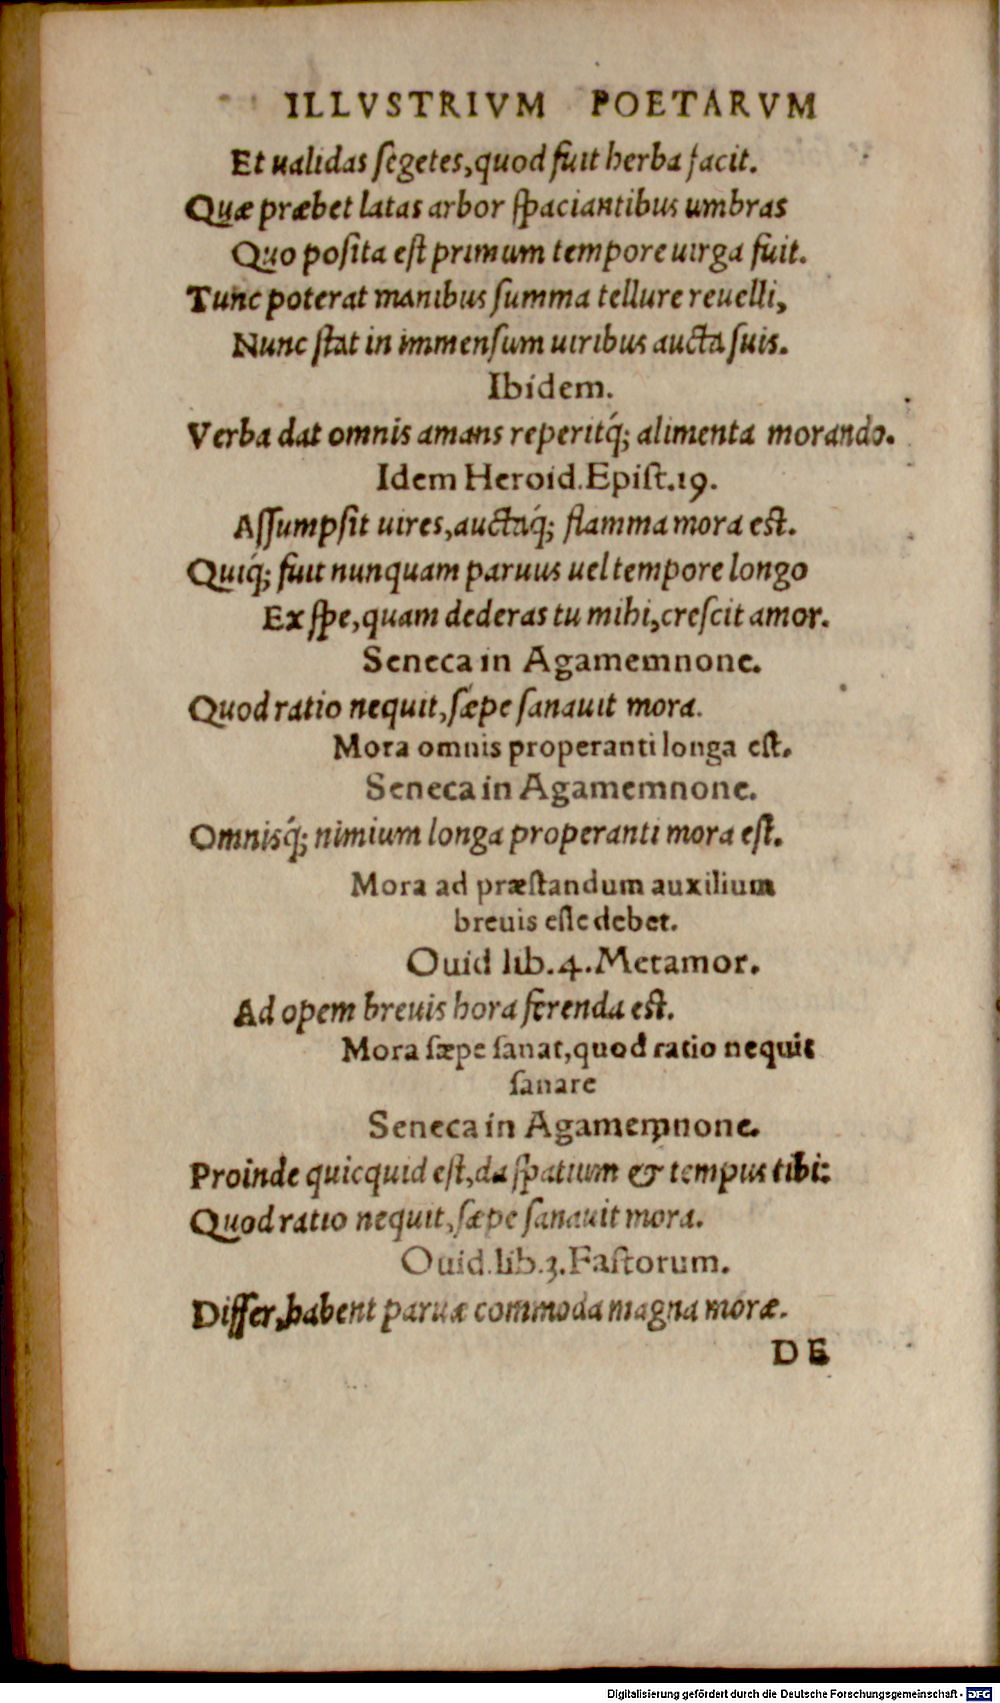 ILLVSTRIVM POETARVM
Et ualidas ſegetes, quod fuit herba facit.
Quæ præbet latas arbor ſpaciantibus umbras
Quo poſita eſt primum tempore uirga fuit.
Tunc poterat manibus ſumma tellure reuelli,
Nunc ſtat in immenſum uiribus aucta ſuis.
Ibidem.
Verba dat omnis amans reperitq́; alimenta morando.
Idem Heroid. Epiſt. 19.
Aſſumpſit uires, auctaq́; flamma mora eſt.
Quiq́; fuit nunquam paruus uel tempore longo
Ex ſpe, quam dederas tu mihi, creſcit amor.
Seneca in Agamemnone.
Quod ratio nequit, ſæpe ſanauit mora.
Mora omnis properanti longa eſt.
Seneca in Agamemnone.
Omnisq́; nimium longa properanti mora eſt.
Mora ad præſtandum auxilium
breuis eſſe debet.
Ouid lib. 4. Metamor.
Ad opem breuis hora ferenda eſt.
Mora ſæpe ſanat, quod ratio nequit
ſanare
Seneca in Agamemnone.
Proinde quicquid eſt, da ſpatium & tempus tibi:
Quod ratio nequit, ſæpe ſanauit mora.
Ouid. lib. 3. Faſtorum.
Differ, habent paruæ commoda magna moræ.
DE
Digitalisierung gefördert durch die Deutsche Forschungsgemeinschaft - DFG